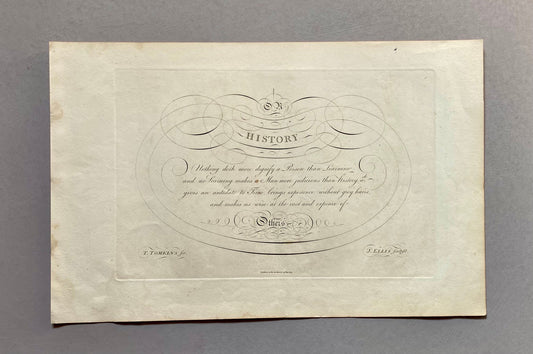 ON
HISTORY
Nothing doth more dignify a Person than Learning
and no Learning makes a Man more judicious than History it
gives an antidote to Time brings experience without grey hairs,
and makes us wise at the cost and expence of
Others
T. TOMKINS scr.
J. ELLIS sculpt.